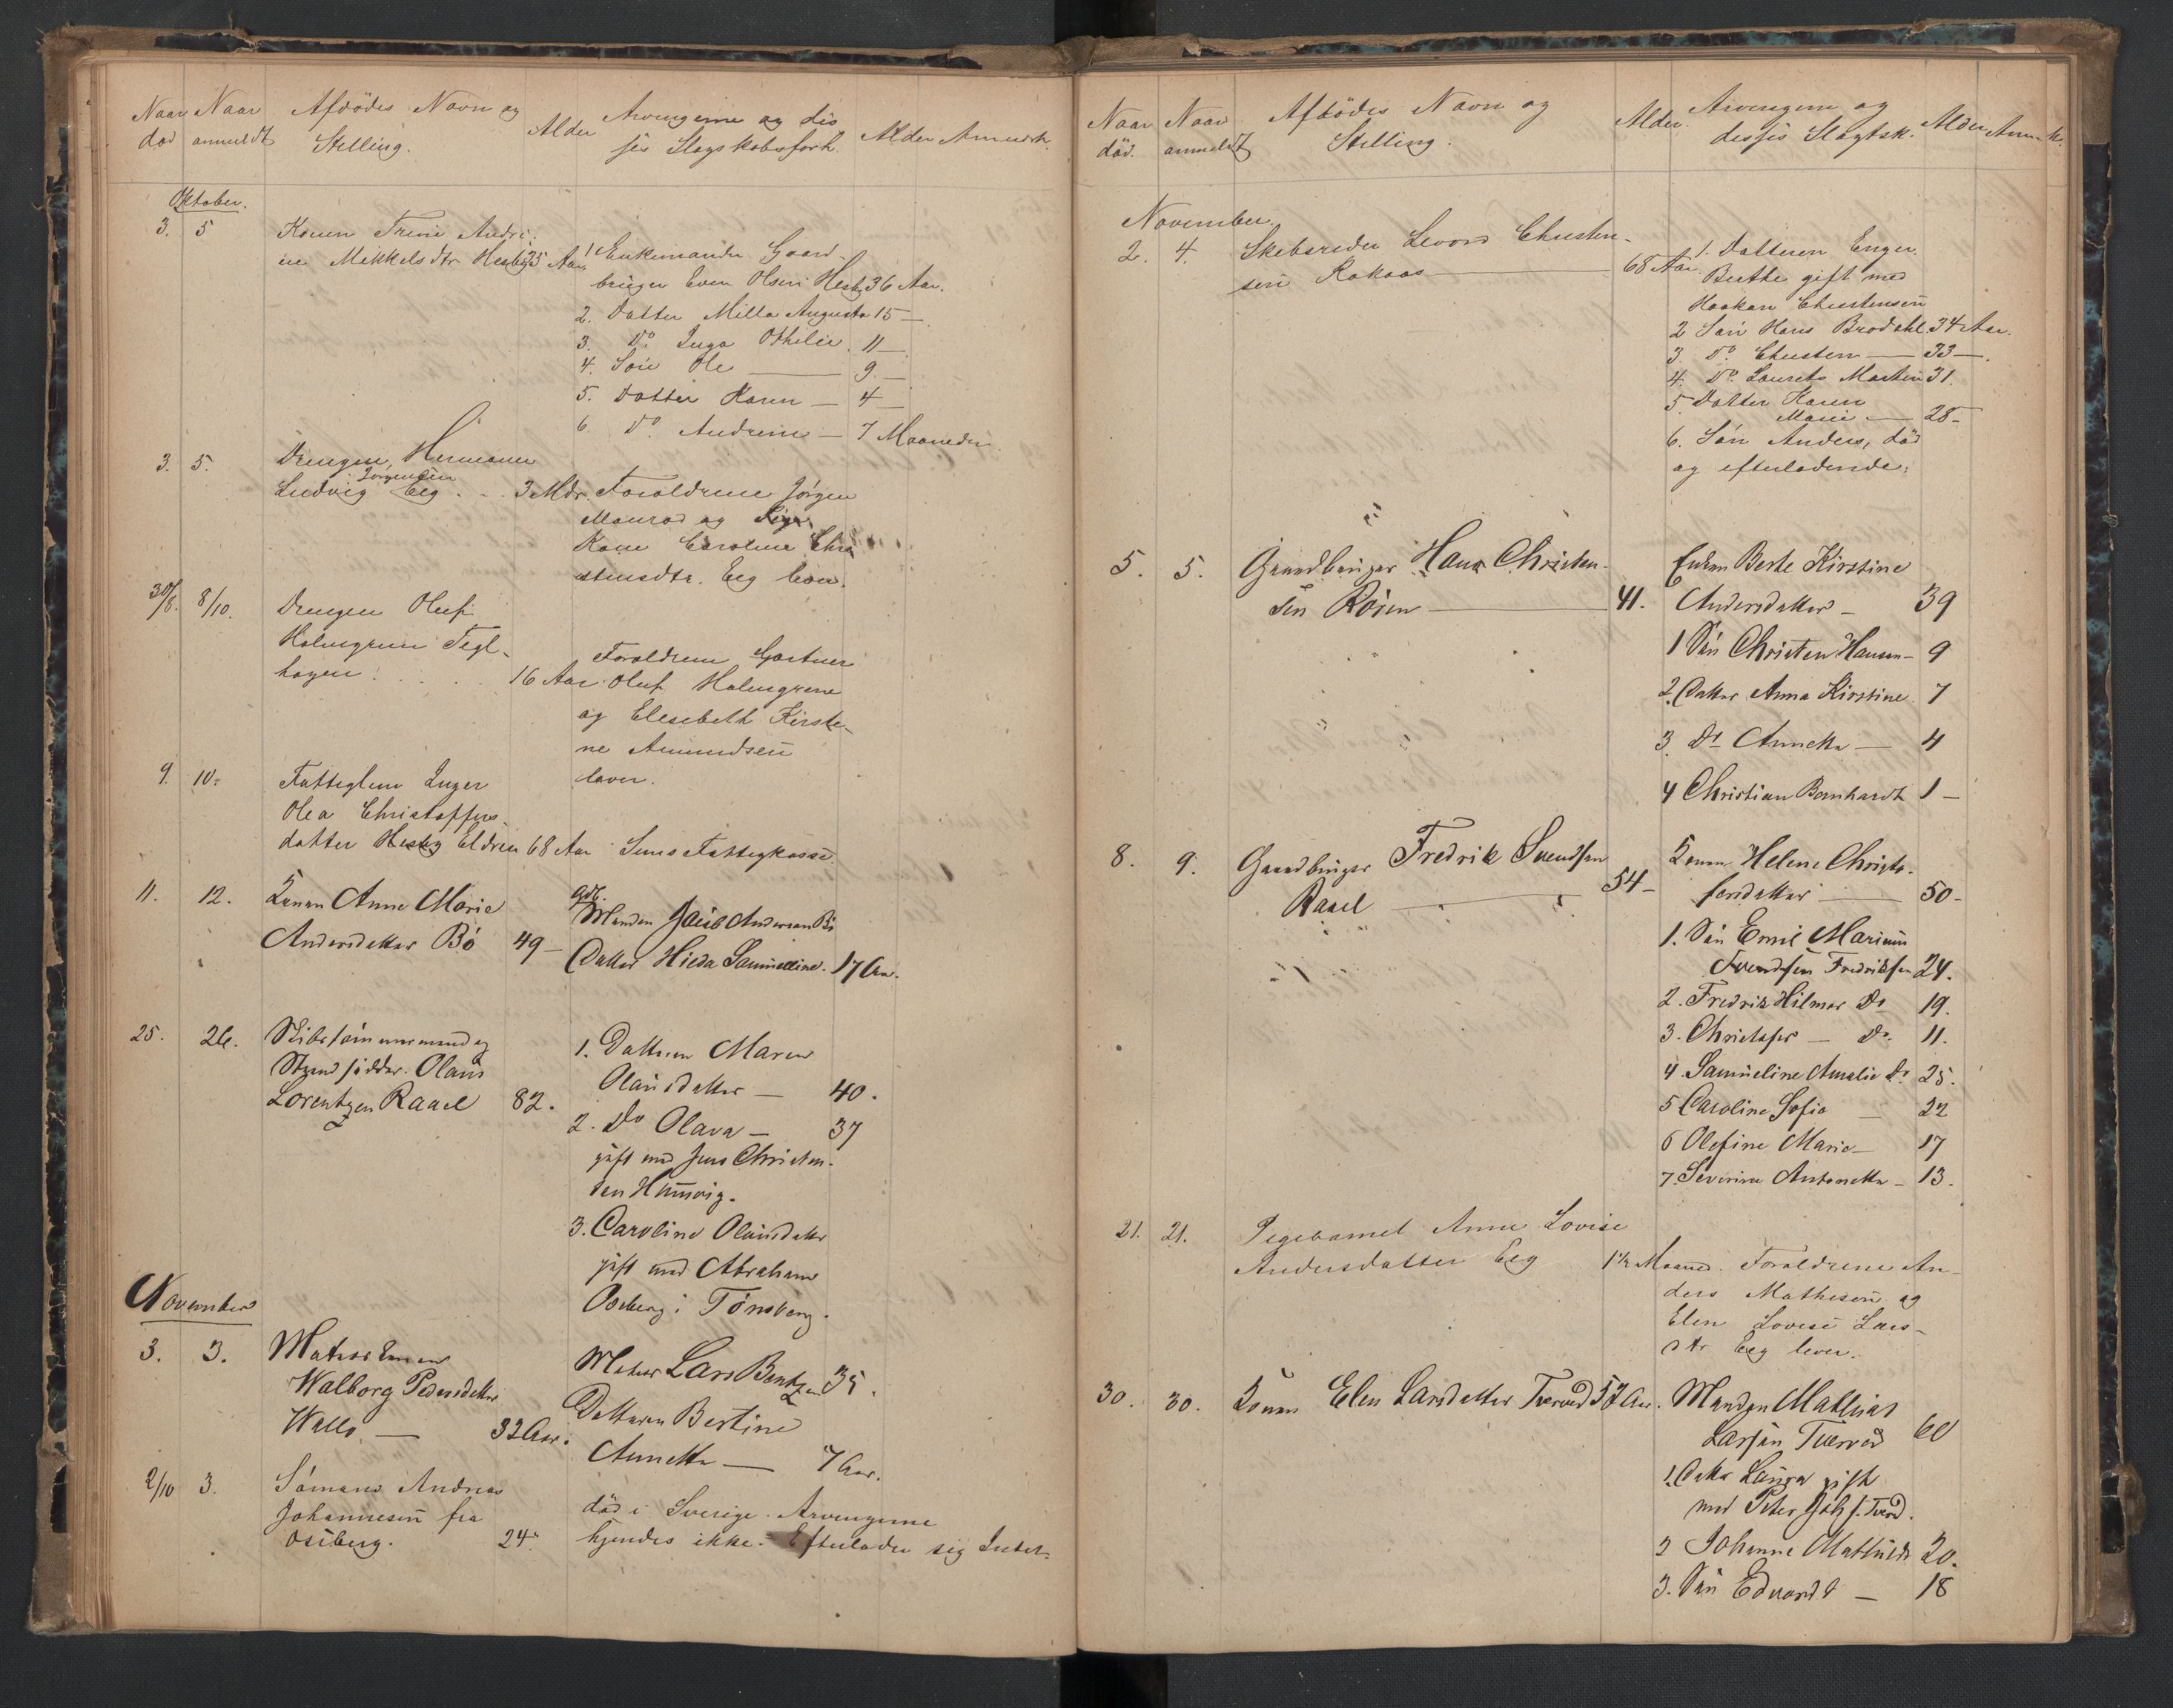 Naar Naar Afdödes Navn og Alder Arvingerne og dis Alder Anmerk.
död anmeldt Stelling. ses Slegskabsforh.
Oktober.
3. 5 Konen Trine Andri-
ne Mikkelsdtr Hesby 35 Aar
1 Enkemanden Gaard
bruger Even Olsen Hesby 36 Aar.
2. Datter Milla Augusta 15 —
3. Do Inga Othelie 11 —
4. Sön Ole — 9 —
5. Datter Karen — 4 —
6. Do Andrine — 7 Maaneder
3. 5. Drengen Herman
Jörgensen
Ludvig Eeg . . 3 Mdr. Foraldrene Jörgen
og
Kone Caroline Chri
stensdtr. Eeg lever.
30/8. 8/10. Drengen Oluf
Holmgren Tegl-
hagen . . . 16 Aar
Foraldrene Gartner
Oluf Holmgrene
og Elesebeth Kirste-
ne Amundsen
lever.
9. 10. Fattiglem Inger
Olea Christoffers-
datter Hesby Eldre 68 Aar Sems Fattigkasse.
11. 12. Konen Anne Marie
Andersdatter Bö 49 —
Gdb.
Manden Jacob Andersen Bö
Datter Hilda Samueline. 17 Aar.
25. 26. Skibstömmermand og
Strandsidder. Olaus
Lorentzen Raael 82.
1. Datteren Maren
Olausdatter — 40.
2. Do Olava — 37
gift med Jens Christen-
sen Husvig.
3. Caroline Olausdatter
gift med Abraham
Oseberg i Tönsberg.
November
3. 3. Matros Konen
Walborg Pedersdatter
Wallö — 32 Aar.
Matros Lars Bentzen 35.
Datteren Bertine
Annette — 7 Aar.
2/10 3. Sömand Andreas
Johannesen fra
Oseberg. 24"
död i Sverige. Arvingerne
kjendes ikke. Efterlader sig Intet.
Naar Naar Afdödes Navn og Alder. Arvingerne og Alder Anmk.
död. anmeldt Stilling. disses Slagtsk.
November.
2. 4. Skibsreder Levord Christen-
sen Rakaas — 68 Aar.
1. Datteren Enger
Berthe gift med
Haakon Christensen
2 Sön Hans Brodahl 34 Aar.
3. Do. Christen — 33 —.
4. Do. Laurits Martin 31.
5 Datter Karen
Marie — 28 —
6. Sön Anders, död
og efterladende:
5. 5. Gaardbruger Hans Christen-
sen Rosen — 41.
Enken Berte Kirstine
Andersdatter — 39
1 Sön Christen Hansen — 9
2. Datter Anna Kirstine 7
3. Do Annette — 4
4 Christian Bernhardt 1 —
8. 9. Gaardbruger Fredrik Svendsen
Raael — 54 —
Konen Helene Christo-
fersdatter — 50 —
1. Sön Emil Marinus
Svendsen Fredriksen 24.
2. Fredrik Hilmar Do 19.
3. Christofer — Do. 11.
4. Samueline Amalie Do 25.
5 Caroline Sofie — 22
6 Olefine Marie — 17
7. Severine Antonette — 13.
21. 21. Pigebarnet Anne Lovise
Andersdatter Eeg 1 1/2 Maaned. Foraldrene An-
ders Mathesen og
Elen Lovise Lars-
dtr Eeg lever.
30. 30. Konen Elen Larsdatter Tverved 57 Aar.
Manden Mathias
Larsen Tverved 60
1. Datter Laura gift
med Peter Joh s. Tverd.
2 Johanne Mathilde 20.
3. Sön Edvardt — 18